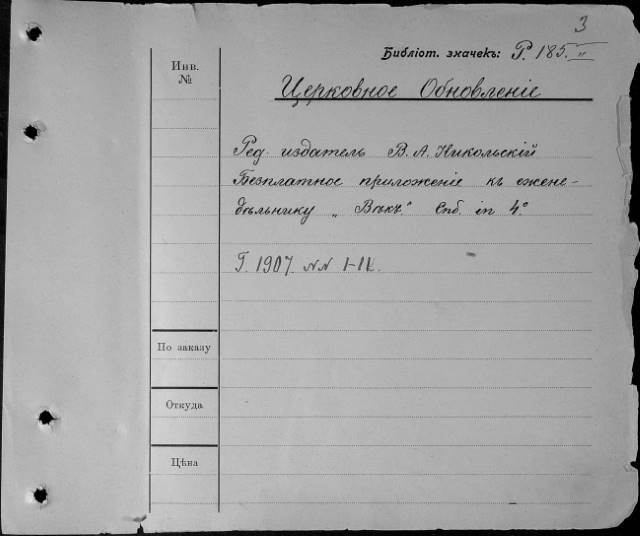 3
Библіот. значекъ: Р. 185.
Инв. №
Церковное Обновленіе
Ред. издатель В. А. Никольскій
Безплатное приложеніе къ ежене-
дѣльнику „Вѣкъ“ Спб. in 4º
Г. 1907. NN 1-11.
По заказу
Откуда
Цѣна